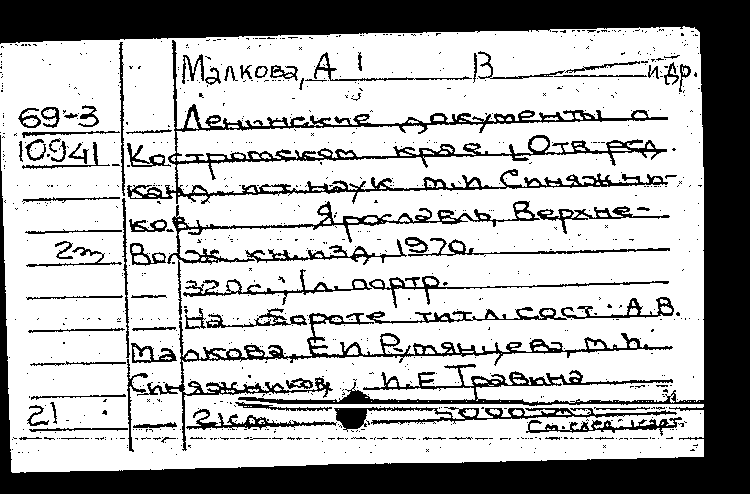 Малкова, А В и др.
69-3 Ленинские документы о
10941 Костромском крае. [Отв. ред.
канд. ист. наук М.И. Синяжни-
ков]. Ярославль, Верхне-
2м Волж. кн. изд, 1970.
320 с.; 1 л. портр.
На обороте тит. л. сост.: А.В.
Малкова, Е.И. Румянцева, М.И.
Синяжников, И.Е Травина
21 21 cm 5000
См. след. карт.